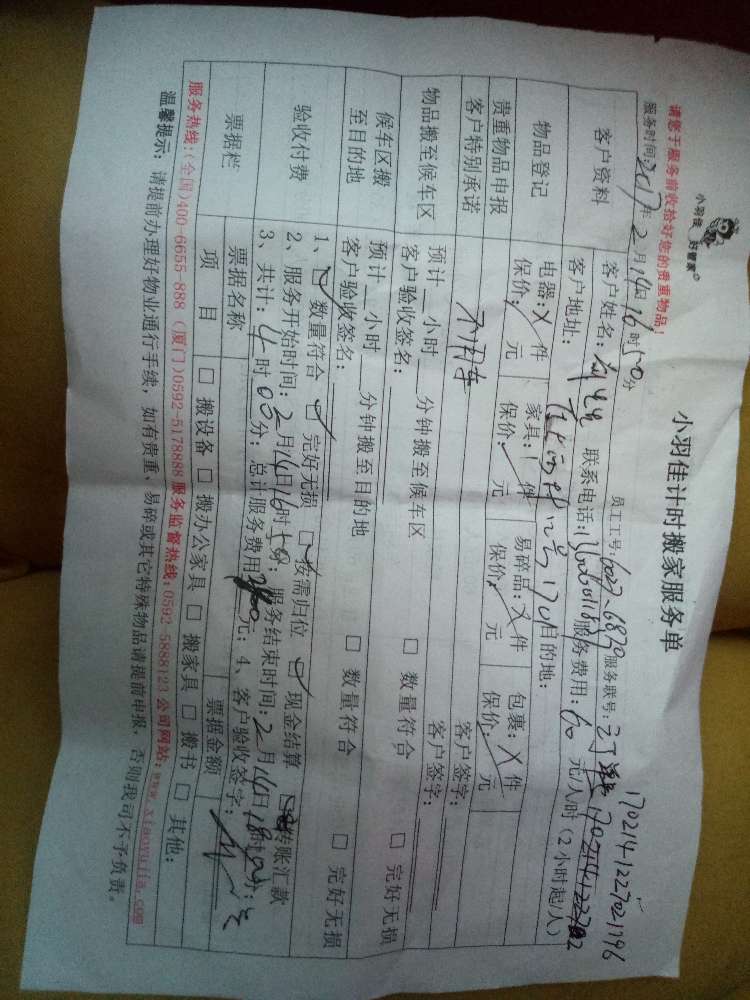 小羽佳 好管家
小羽佳计时搬家服务单
170214-1227021796
请您于服务前收拾好您的贵重物品!
员工工号: 服务联号:
服务时间:2017年2月14日16时50分
客户资料
客户姓名: 联系电话: 服务费用:60元/人/时(2小时起/人)
客户地址: 目的地:
物品登记
电器:X件 家具:1件 易碎品:X件 包裹:X件
保价: 元 保价: 元 保价: 元 保价: 元
贵重物品申报 客户签字:
客户特别承诺 不用车 客户签字:
物品搬至候车区
预计__小时__分钟搬至候车区
客户验收签名: □ 数量符合 □ 完好无损
候车区搬至目的地
预计__小时__分钟搬至目的地
客户验收签名: □ 数量符合 □ 完好无损
验收付费
1、☑ 数量符合 ☑ 完好无损 ☑ 按需归位 ☑ 现金结算 转账汇款
2、服务开始时间:2月14日16时50分; 服务结束时间:2月14日18时 分;
3、共计:4时00分; 总计服务费用 元; 4、客户验收签字:
票据栏
票据名称 票据金额
项目 □ 搬设备 □ 搬办公家具 □ 搬家具 □ 搬书 □ 其他:
服务热线:(全国)400-6655-888 (厦门)0592-5178888 服务监督热线:0592-5888123 公司网站:www.xiaoyujia.com
温馨提示:请提前办理好物业通行手续,如有贵重、易碎或其它特殊物品请提前申报,否则我司不予负责。